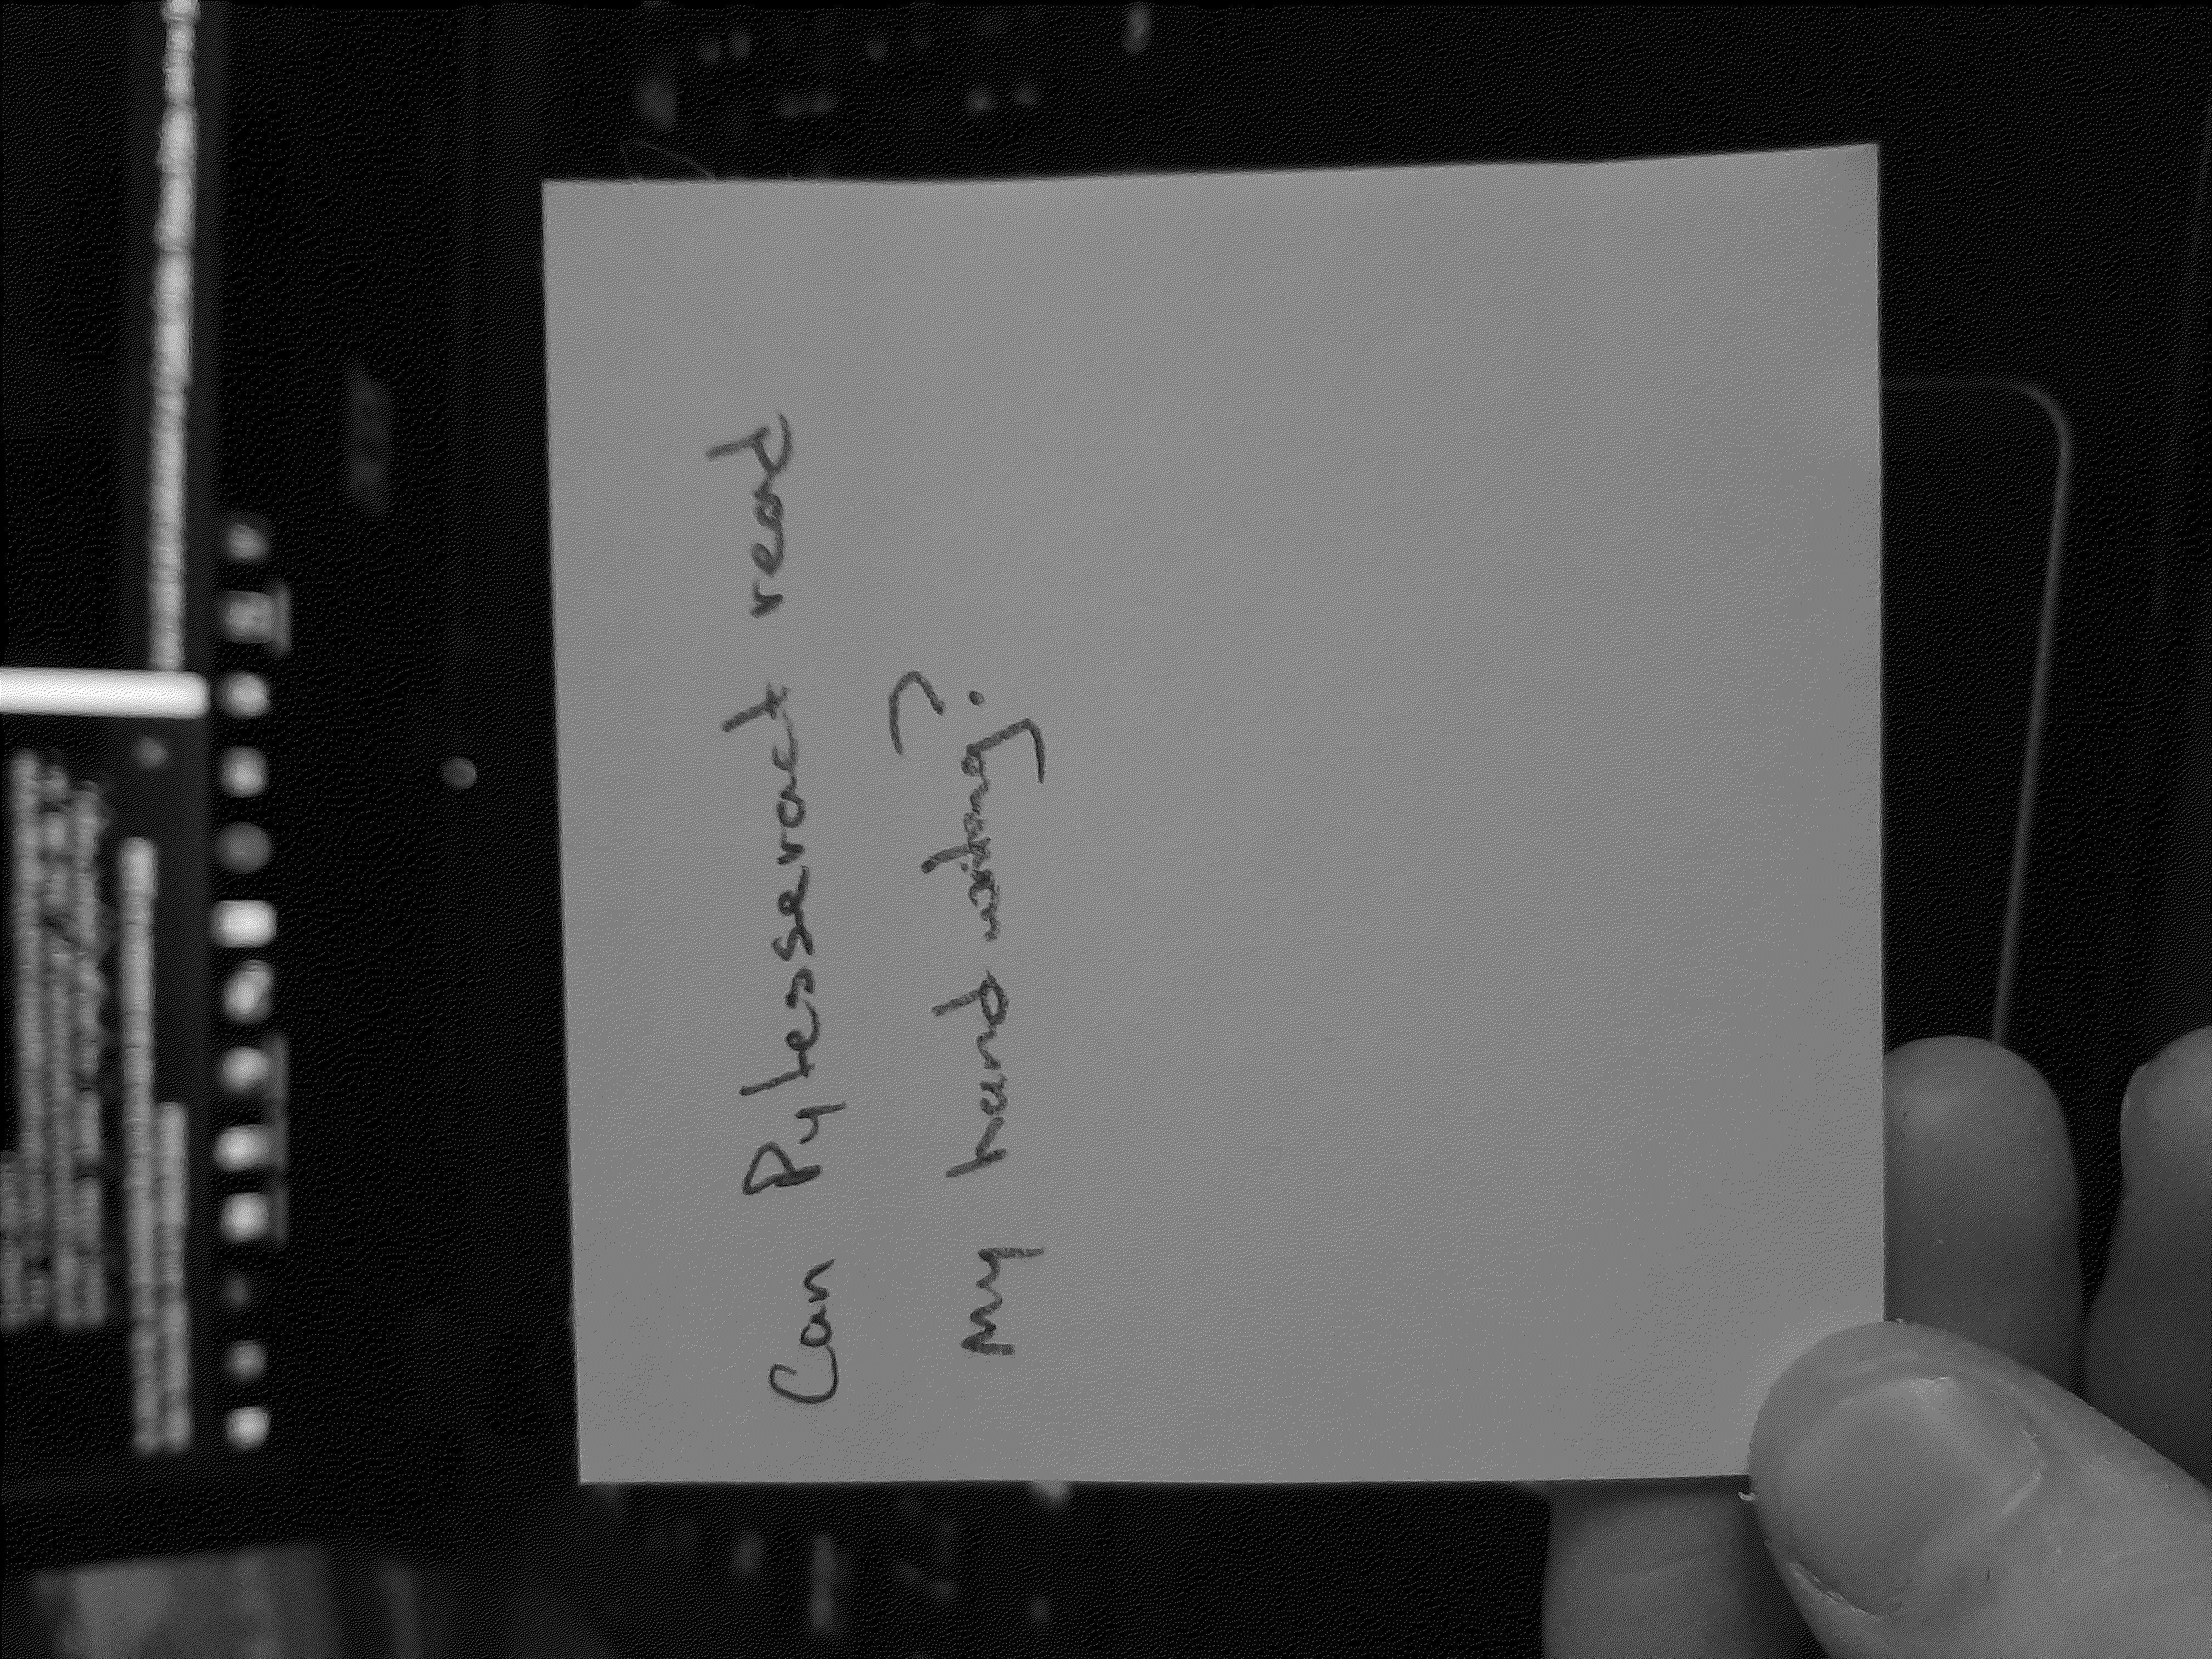 Can Pytesseract read
my hand writing?